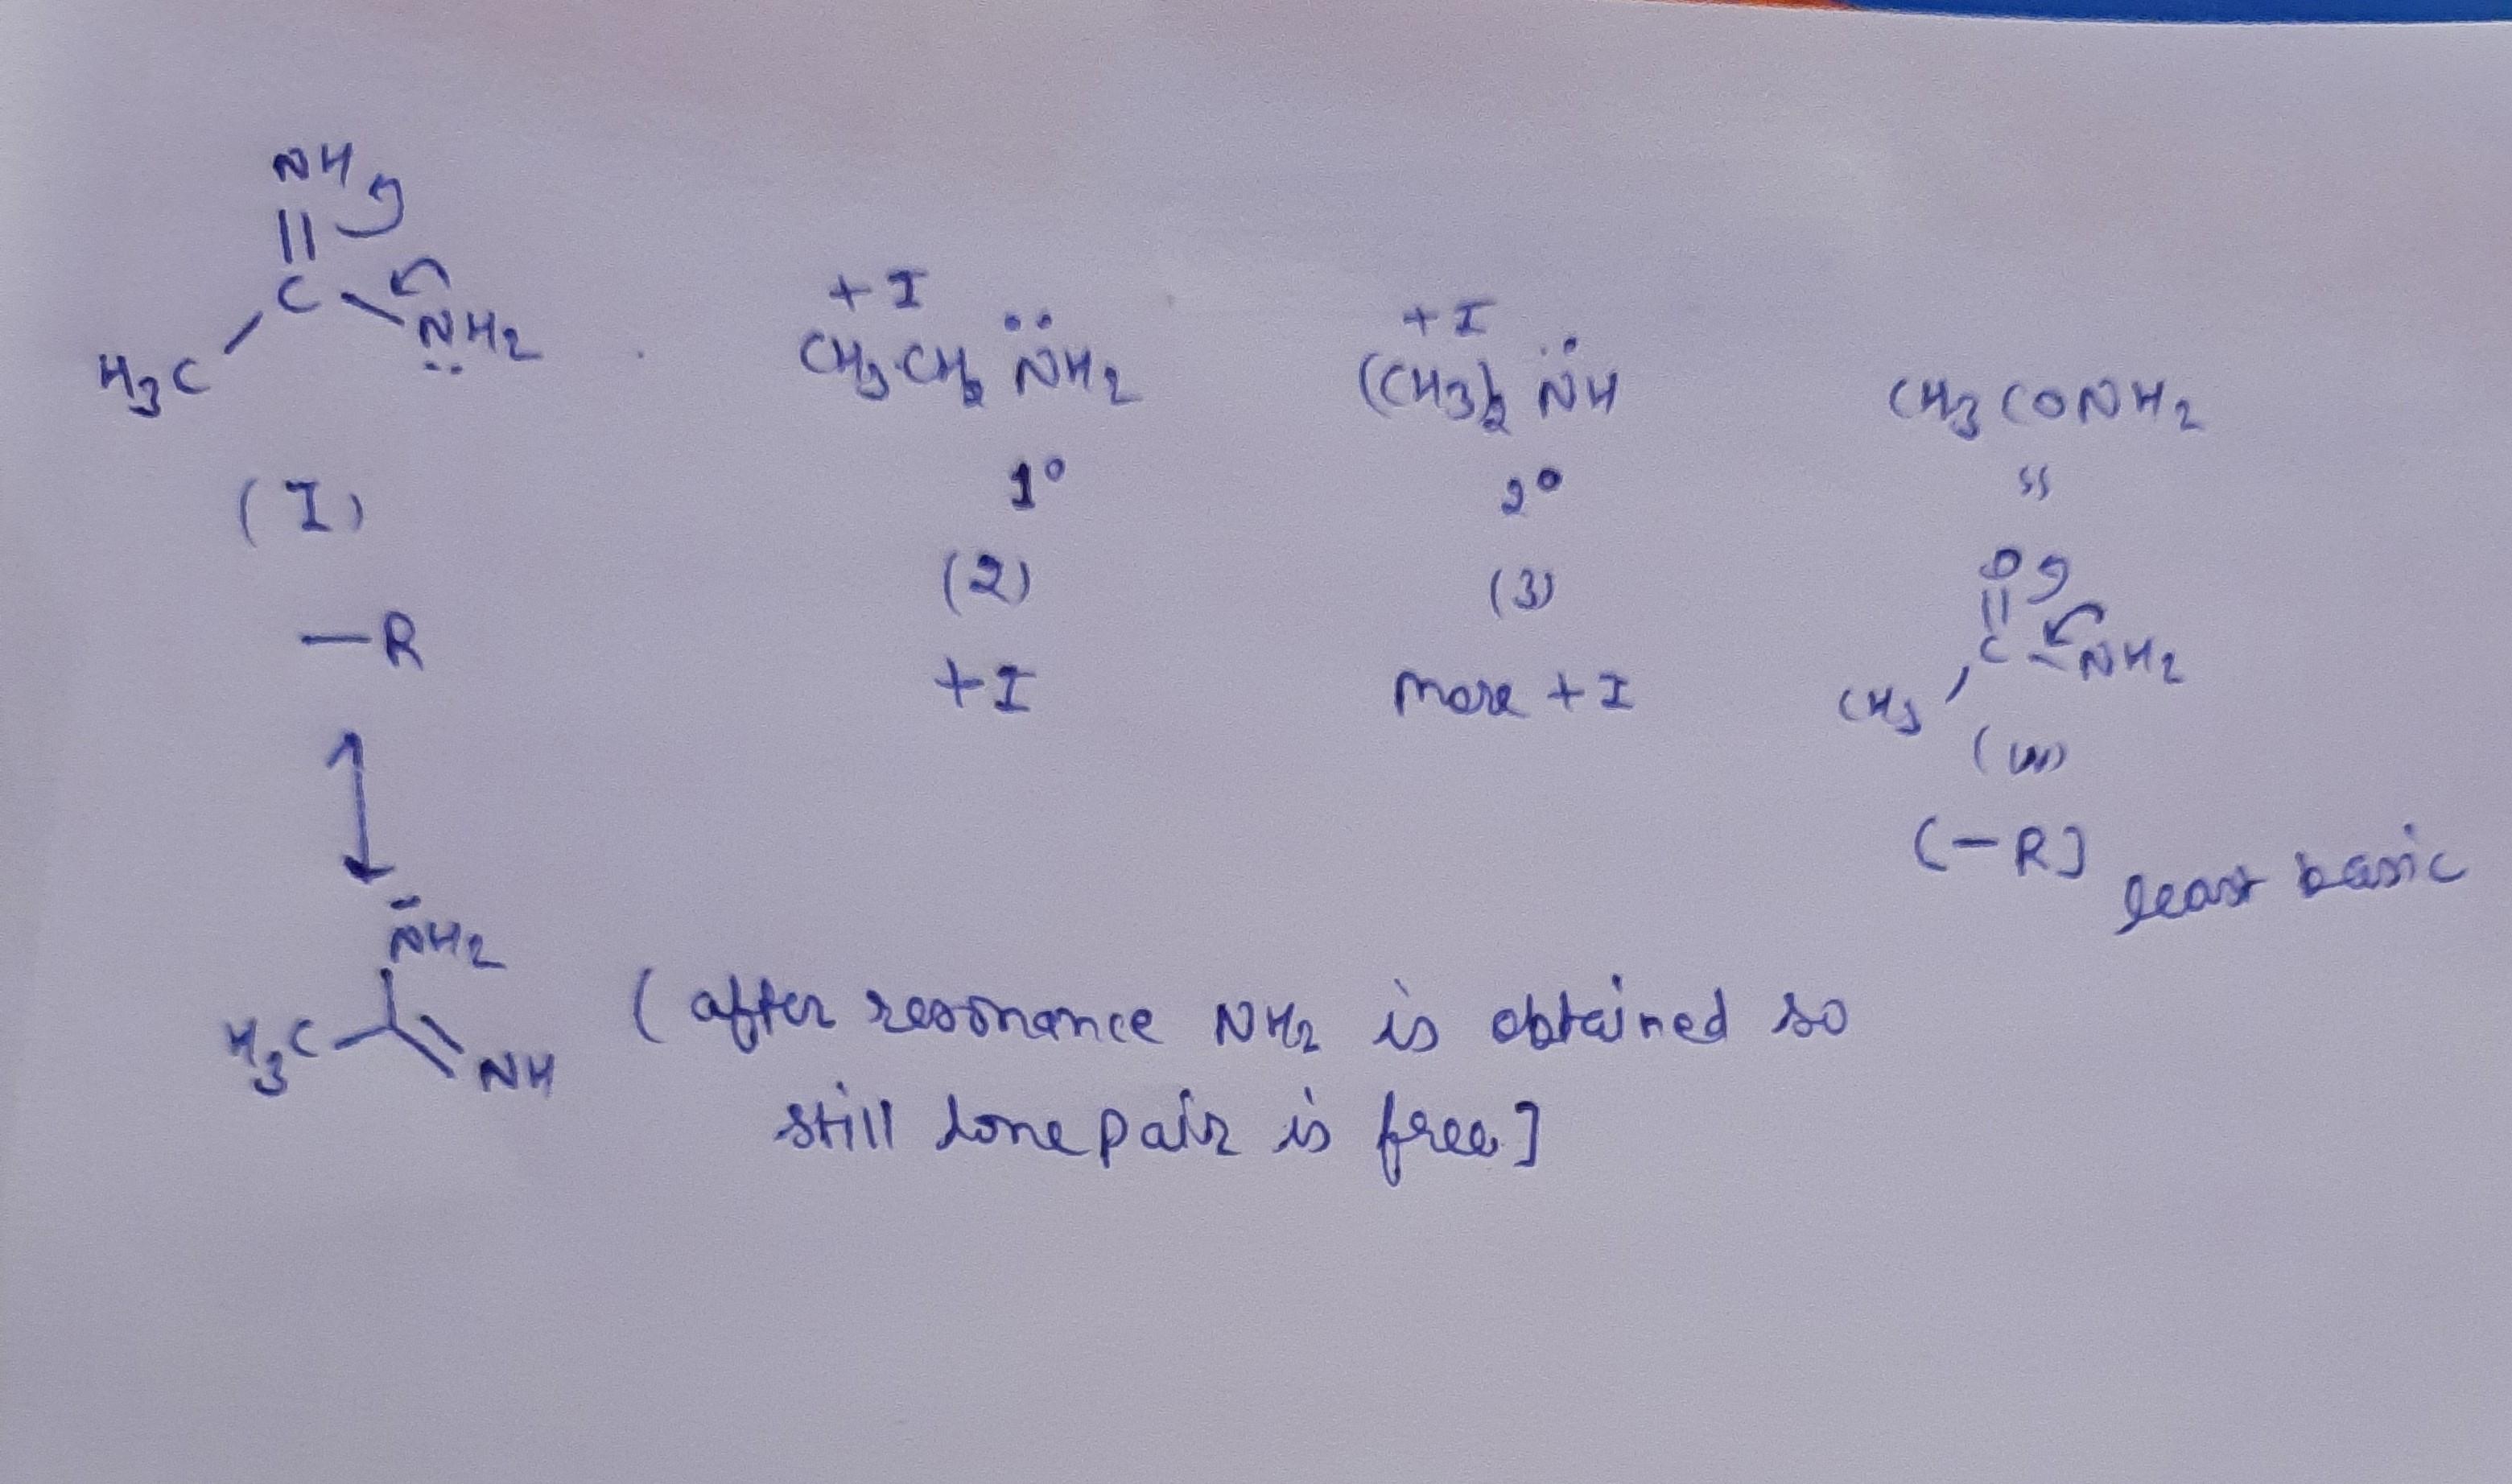 NH
||
C
N̈H2
H3C
(I)
-R
+I
CH3-CH2 N̈H2
1°
(2)
+I
+I
(CH3)2 N̈H
2°
(3)
more +I
CH3CONH2
O
||
C
NH2
CH3
(-R]
least basic
N̄H2
H3C
NH
( after resonance NH2 is obtained so
still lone pair is free]